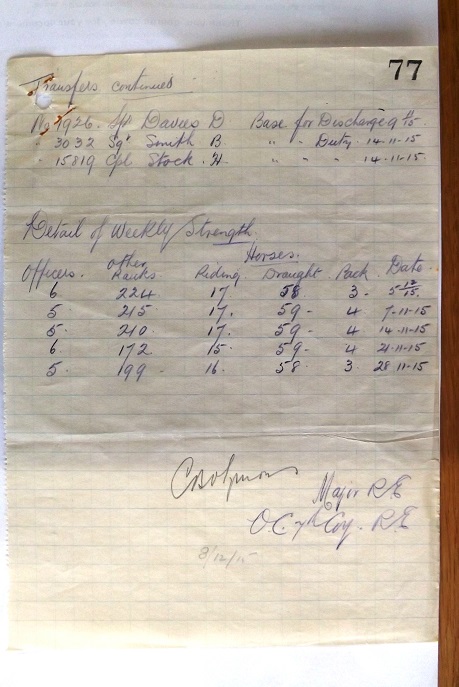 77
Transfers continued
No 1926. Spr Davies D Base for Discharge 9
" 3032 Sgt Smith B. " " Duty. 14-11-15
" 15819 Cpl Stock. H. " " " 14-11-15.
Detail of Weekly Strength.
Horses.
Officers. Other Ranks. Riding. Draught Pack. Date.
6 224. 17 58. 3 - 5-12/15.
5 215 17. 59 - 4 7-11-15
5. 210. 17. 59 - 4 14-11-15
6 172. 15. 59- 4 21-11-15
5. 199 - 16. 58. 3. 28-11-15
Major RE
O.C. 7th Coy. R.E
3/12/15